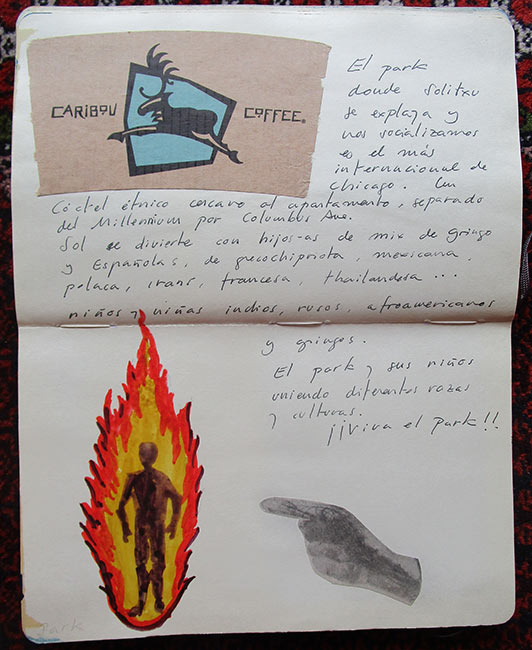 CARIBOU COFFEE®
El park
donde Solitxu
se explaya y
nos socializamos
es el más
internacional de
Chicago. Un
Cóctel étnico cercano al apartamento, separado
del Millennium por Columbus Ave.
Sol se divierte con hijos-as de mix de gringo
y Españolas, de grecochipriota, mexicana,
polaca, irans, francesa, thailandesa ...
niños y niñas indios, rusos, afroamericanos
y gringos.
El park y sus niños
uniendo diferentes razas
y culturas.
¡¡Viva el park!!
Park